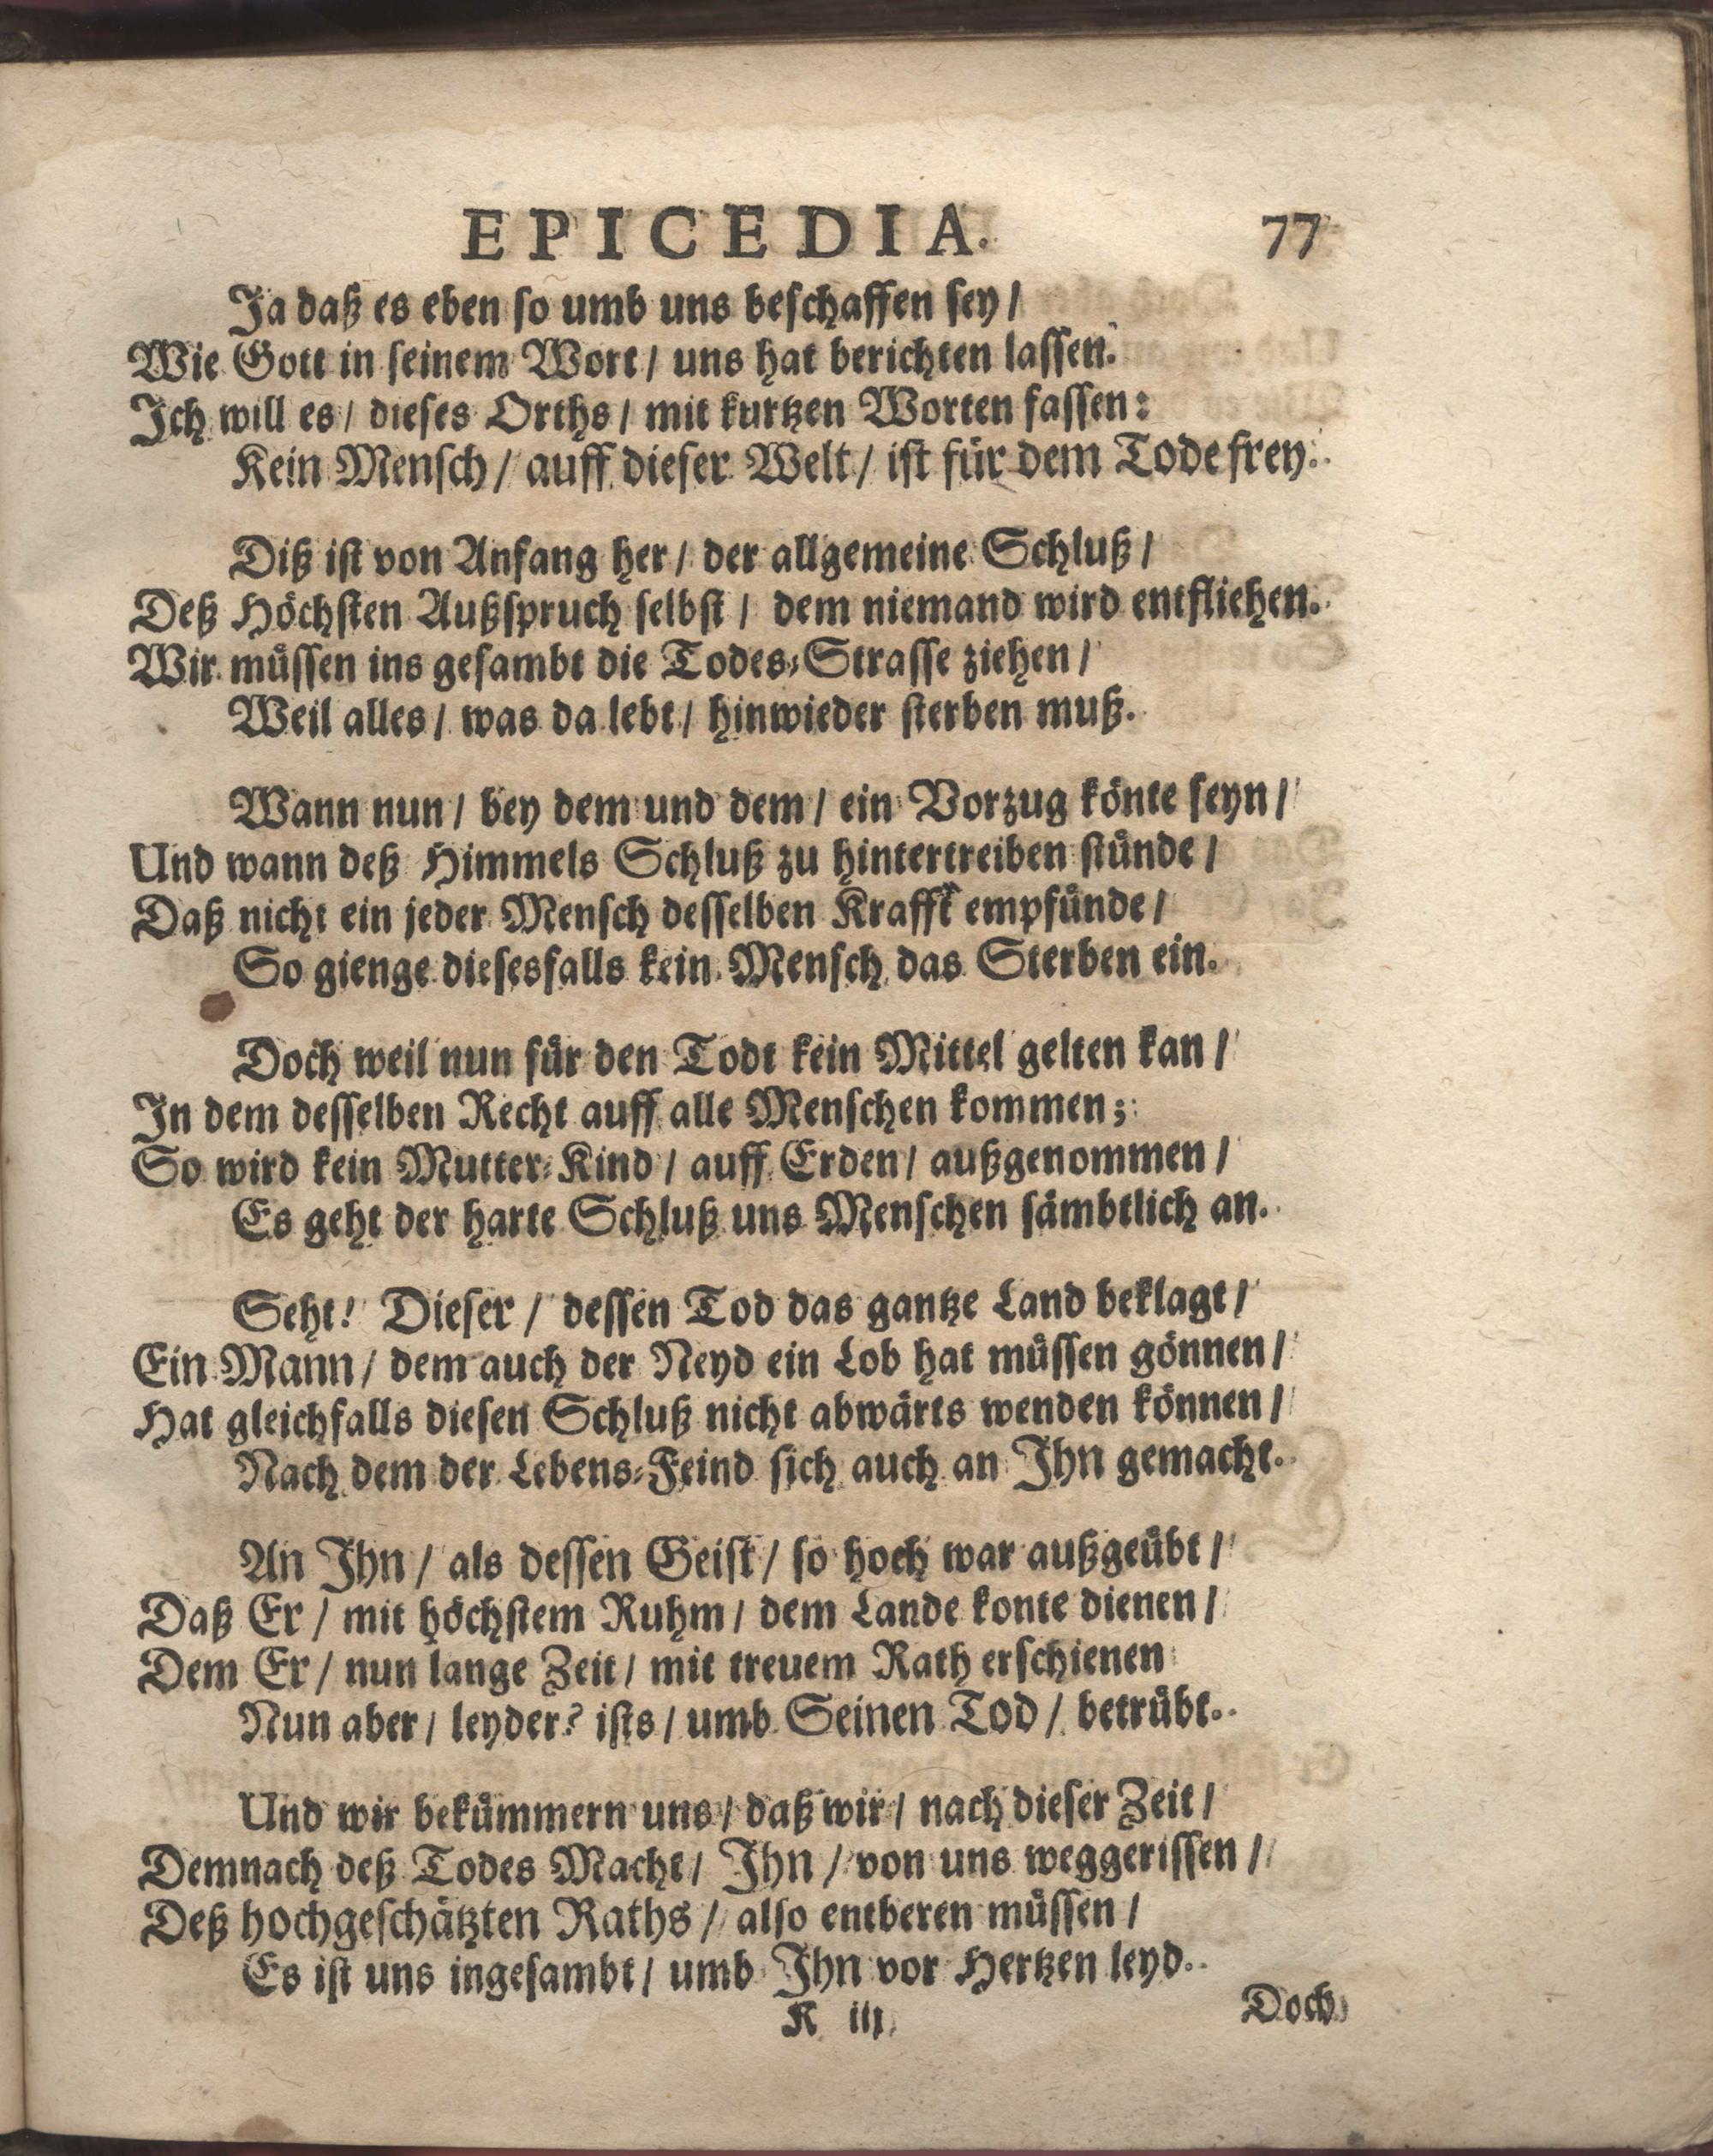 EPICEDIA. 77
Ja daß es eben ſo umb uns beſchaffen ſey /
Wie Gott in ſeinem Wort / uns hat berichten laſſen.
Ich will es / dieſes Orths / mit kurtzen Worten faſſen:
Kein Menſch / auff dieſer Welt / iſt für dem Tode frey.
Diß iſt von Anfang her / der allgemeine Schluß /
Deß Höchſten Außſpruch ſelbſt / dem niemand wird entfliehen.
Wir müſſen ins geſambt die Todes-Straſſe ziehen /
Weil alles / was da lebt / hinwieder ſterben muß.
Wann nun / bey dem und dem / ein Vorzug könte ſeyn /
Und wann deß Himmels Schluß zu hintertreiben ſtünde /
Daß nicht ein jeder Menſch deſſelben Krafft empfünde /
So gienge dieſesfalls kein Menſch das Sterben ein.
Doch weil nun für den Todt kein Mittel gelten kan /
In dem deſſelben Recht auff alle Menſchen kommen;
So wird kein Mutter-Kind / auff Erden / außgenommen /
Es geht der harte Schluß uns Menſchen ſämbtlich an.
Seht! Dieſer / deſſen Tod das gantze Land beklagt /
Ein Mann / dem auch der Neyd ein Lob hat müſſen gönnen /
Hat gleichfalls dieſen Schluß nicht abwärts wenden können /
Nach dem der Lebens-Feind ſich auch an Ihn gemacht.
An Ihn / als deſſen Geiſt / ſo hoch war außgeübt /
Daß Er / mit höchſtem Ruhm / dem Lande konte dienen /
Dem Er / nun lange Zeit / mit treuem Rath erſchienen
Nun aber / leyder? iſts / umb Seinen Tod / betrübt.
Und wir bekümmern uns / daß wir / nach dieſer Zeit /
Demnach deß Todes Macht / Ihn / von uns weggeriſſen /
Deß hochgeſchätzten Raths / alſo entberen müſſen /
Es iſt uns ingeſambt / umb Ihn vor Hertzen leyd.
K iij
Doch